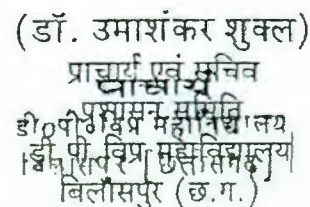 (डॉ. उमाशंकर शुक्ल)
प्राचार्य एवं सचिव
प्राचार्य
प्रशासन समिति
डी.पी. विप्र महाविद्यालय
डी.पी. विप्र महाविद्यालय
बिलासपुर (छ.ग.)